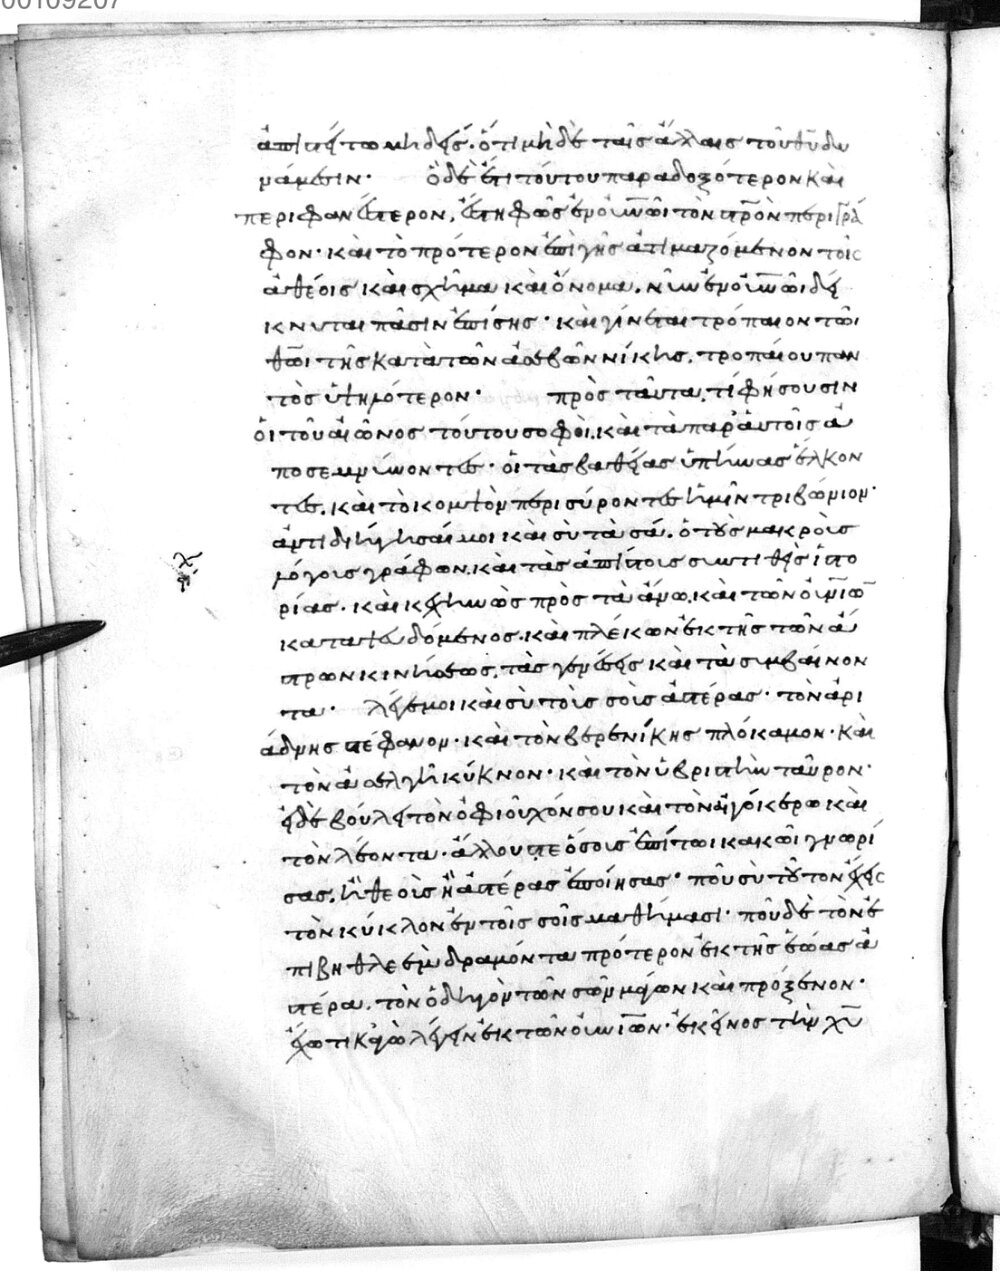 00109207
ἀπιστείτω μηδείς· ὅτι μὴ δὲ ταῖς ἄλλαις τοῦ θῦ δυ
νάμεσιν· ὃ δὲ ἔτι τούτου παραδοξότερον καὶ
περιφανέστερον, ἔστη φῶς ἐν οὐνῶι τὸν στρὸν περιγρά
φον· καὶ τὸ πρότερον ἐπὶ γῆς ἀτιμαζόμενον τοῖς
ἀθέοις καὶ σχῆμα καὶ ὄνομα, νῦν ἐν οὐνῶι δεί
κνυται πᾶσιν ἐπίσης· καὶ γίνεται τρόπαιον τῶι
θῶι τῆς κατὰ τῶν ἀσεβῶν νίκης, τροπαίου παν
τὸς ὑψηλότερον· πρὸς ταῦτα, τί φήσουσιν
οἱ τοῦ αἰῶνος τούτου σοφοὶ, καὶ τὰ παρ' αὐτοῖς ἀ
ποσεμνύνοντες· οἱ τὰς βαθείας ὑπήνας ἕλκον
τες, καὶ τὸ κομψὸν περισύροντες ἡμῖν τριβώνιον·
ἀντιδιήγησαί μοι καὶ σὺ τὰ σά, ὁ τοὺς μακροὺς
λόγους γράφων, καὶ τὰς ἀπίστους συντιθεὶς ἱστο
ρίας· καὶ κεχηνὼς πρὸς τὰ ἄνω, καὶ τῶν οὐνίων
καταψευδόμενος· καὶ πλέκων ἐκ τῆς τῶν ἄ
στρων κινήσεως, τὰς γενέσεις καὶ τὰ συμβαίνον
τα· λέγε μοι καὶ σὺ τοὺς σοὺς ἀστέρας· τὸν ἀρι
άδνης στέφανον· καὶ τὸν βερενίκης πλόκαμον· καὶ
τὸν ἀσελγῆ κύκνον· καὶ τὸν ὑβριστὴν ταῦρον·
εἰ δὲ βούλει τὸν ὀφιοῦχόν σου καὶ τὸν αἰγόκερω καὶ
τὸν λέοντα· ἄλλους τε ὅσους ἐπὶ τῶι κακῶι γνωρί
σας, ἢ θεοὺς ἢ ἀστέρας ἐποίησας· ποῦ σὺ τοῦτον ἔχεις
τὸν κύκλον ἐν τοῖς σοῖς μαθήμασι· ποῦ δὲ τὸν ἐ
πὶ βηθλεὲμ δραμόντα πρότερον ἐκ τῆς ἑώας ἀ
στέρα, τὸν ὁδηγὸν τῶν σῶν μάγων καὶ πρόξενον·
ἔχω τι κἀγὼ λέγειν ἐκ τῶν οὐνίων· ἐκεῖνος τὴν χῦ